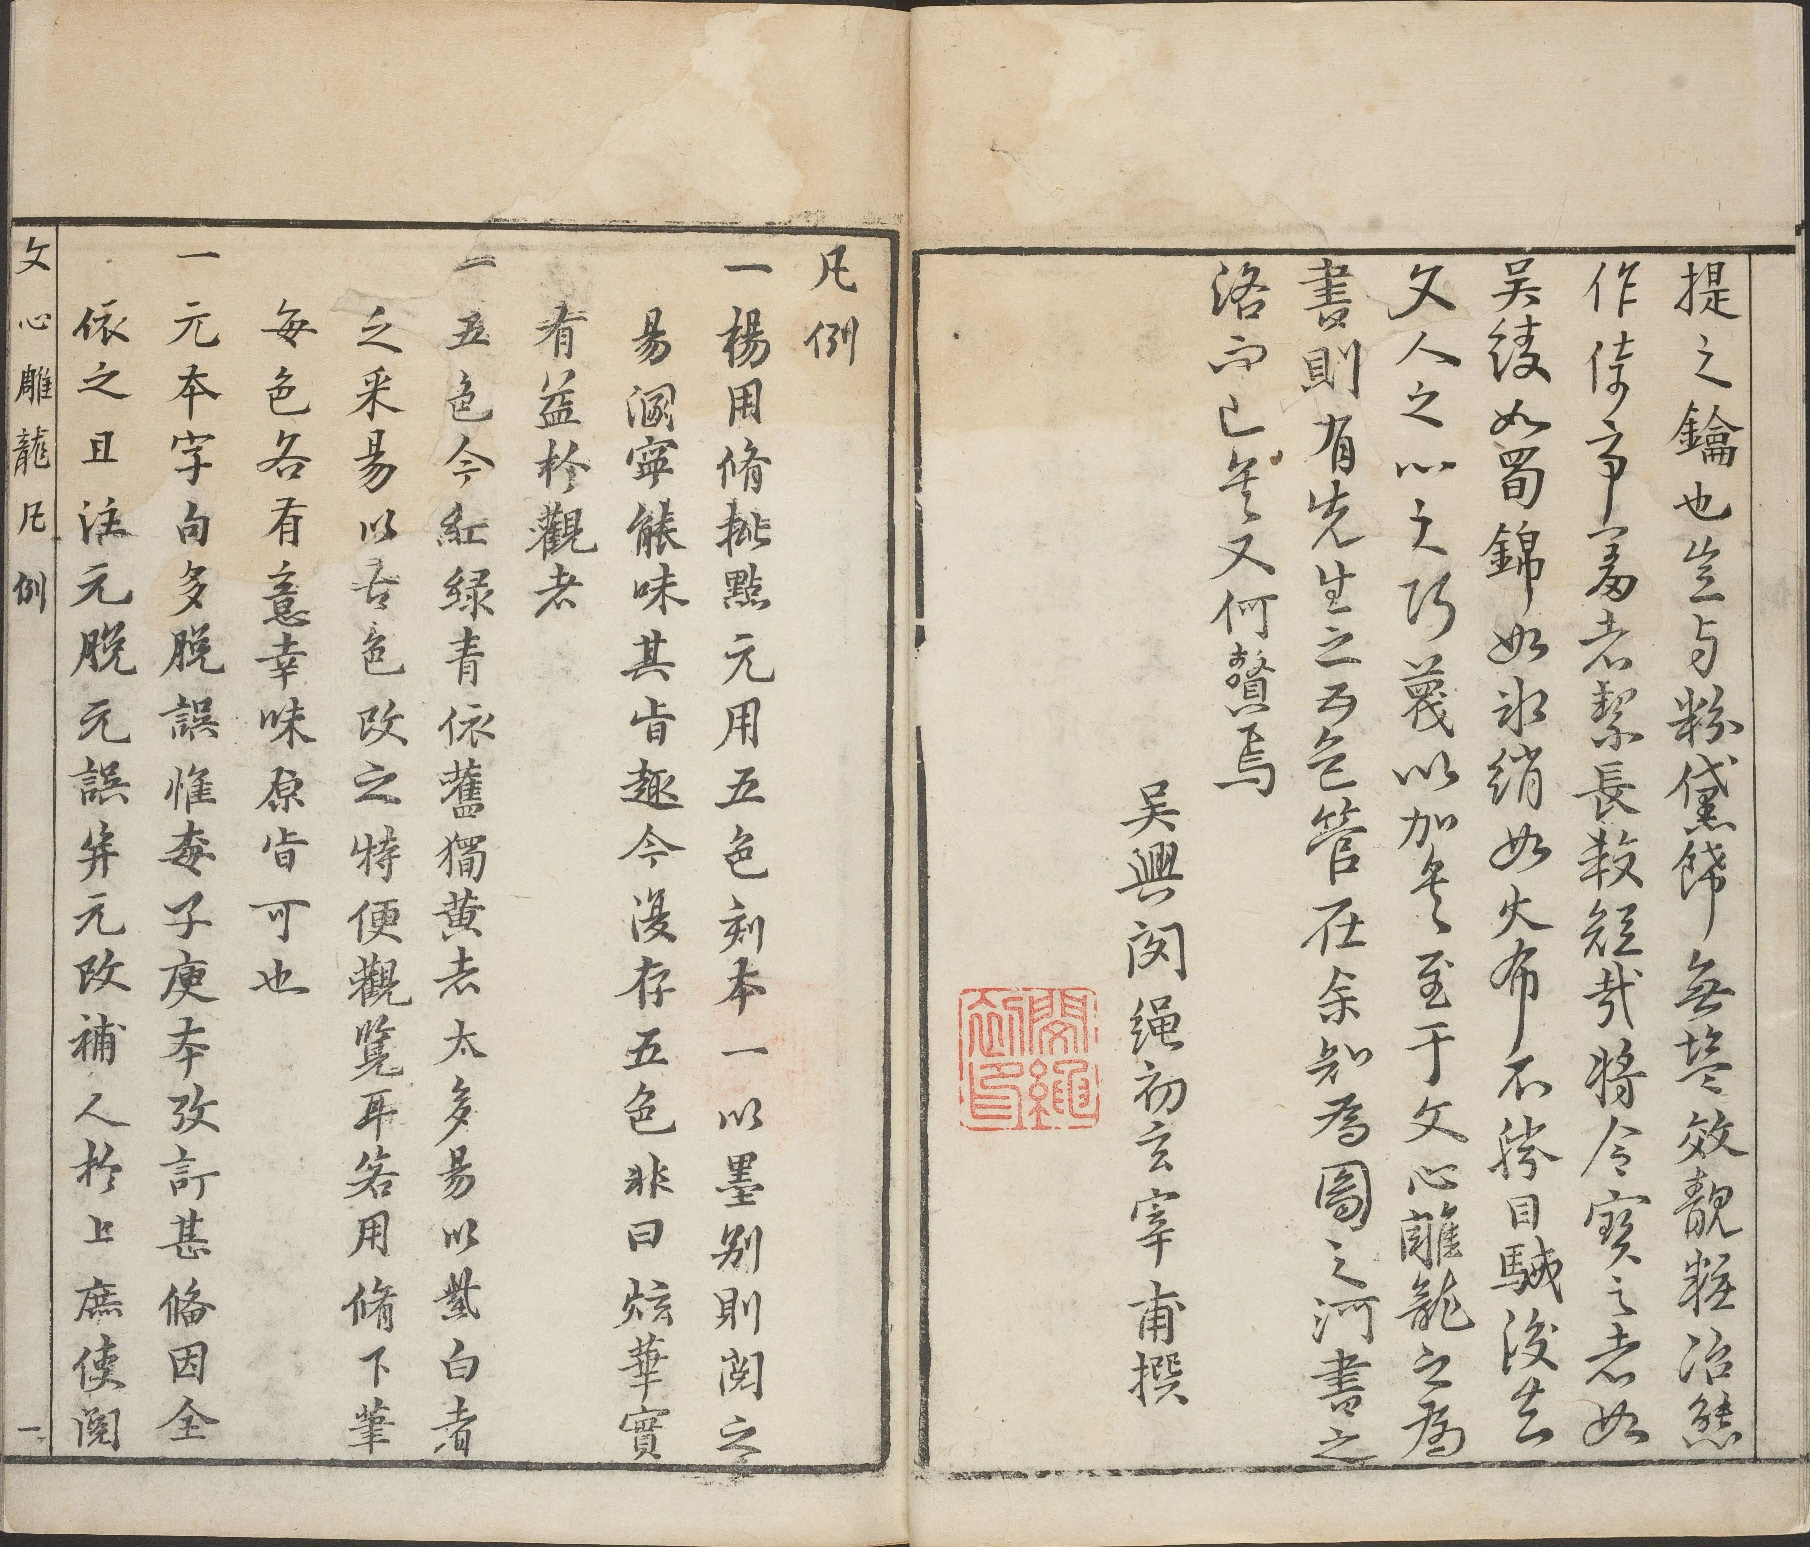 提之鑰也豈与粉黛餙無塩效靚粧冶態
作倚市者絜長較短哉將令寶之者如
吴綾如蜀錦如氷綃如火布不勝目駴後先
文人之心之巧蔑以加矣至于文心雕龍之為
書則有先生之五色管在余知為圖之河書之
洛而已矣又何贅焉
吴興閔繩初玄宰甫撰
閔繩初印
凡例
一楊用脩批點元用五色刻本一以墨别則閱之
易溷寧能味其旨趣今復存五色非曰炫華實
有益於觀者
一五色今紅緑青依舊獨黄者太多易以紫白者
之采易以古色改之特便觀覽耳若用脩下筆
每色各有意幸味原旨可也
一元本字句多脱誤惟梅子庚本攷訂甚俻因全
依之且注元脱元誤并元改補人於上庶使閱
文心雕龍凡例 一